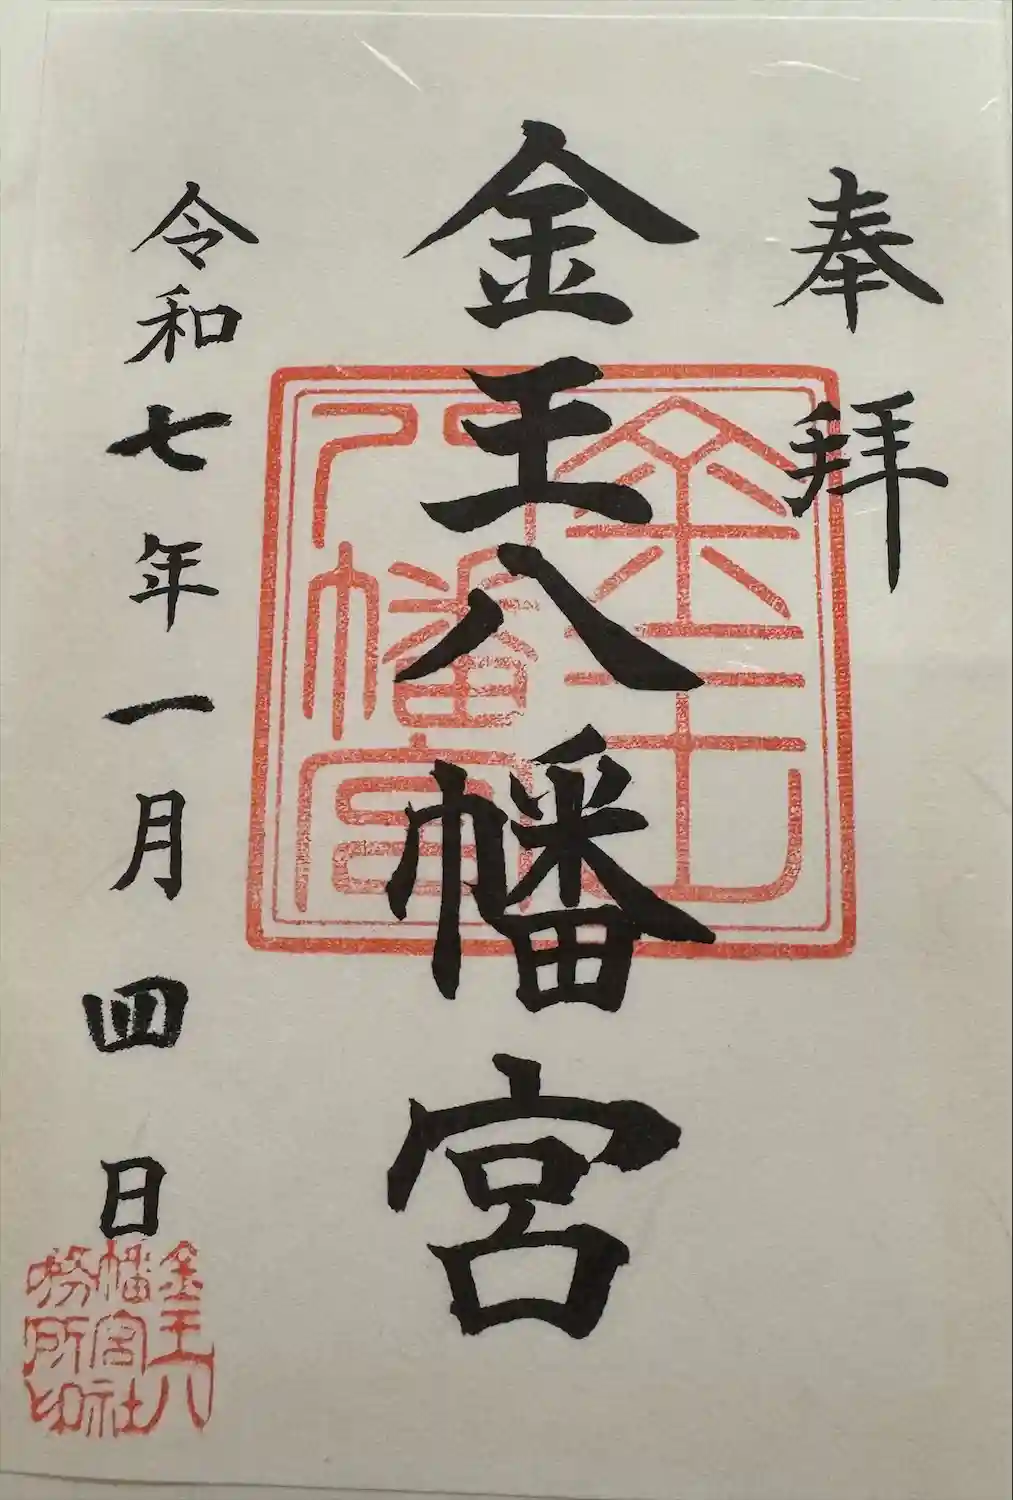 奉拝
金王八幡宮
令和七年一月四日
金王
八幡宮
金王八
幡宮社
務所印